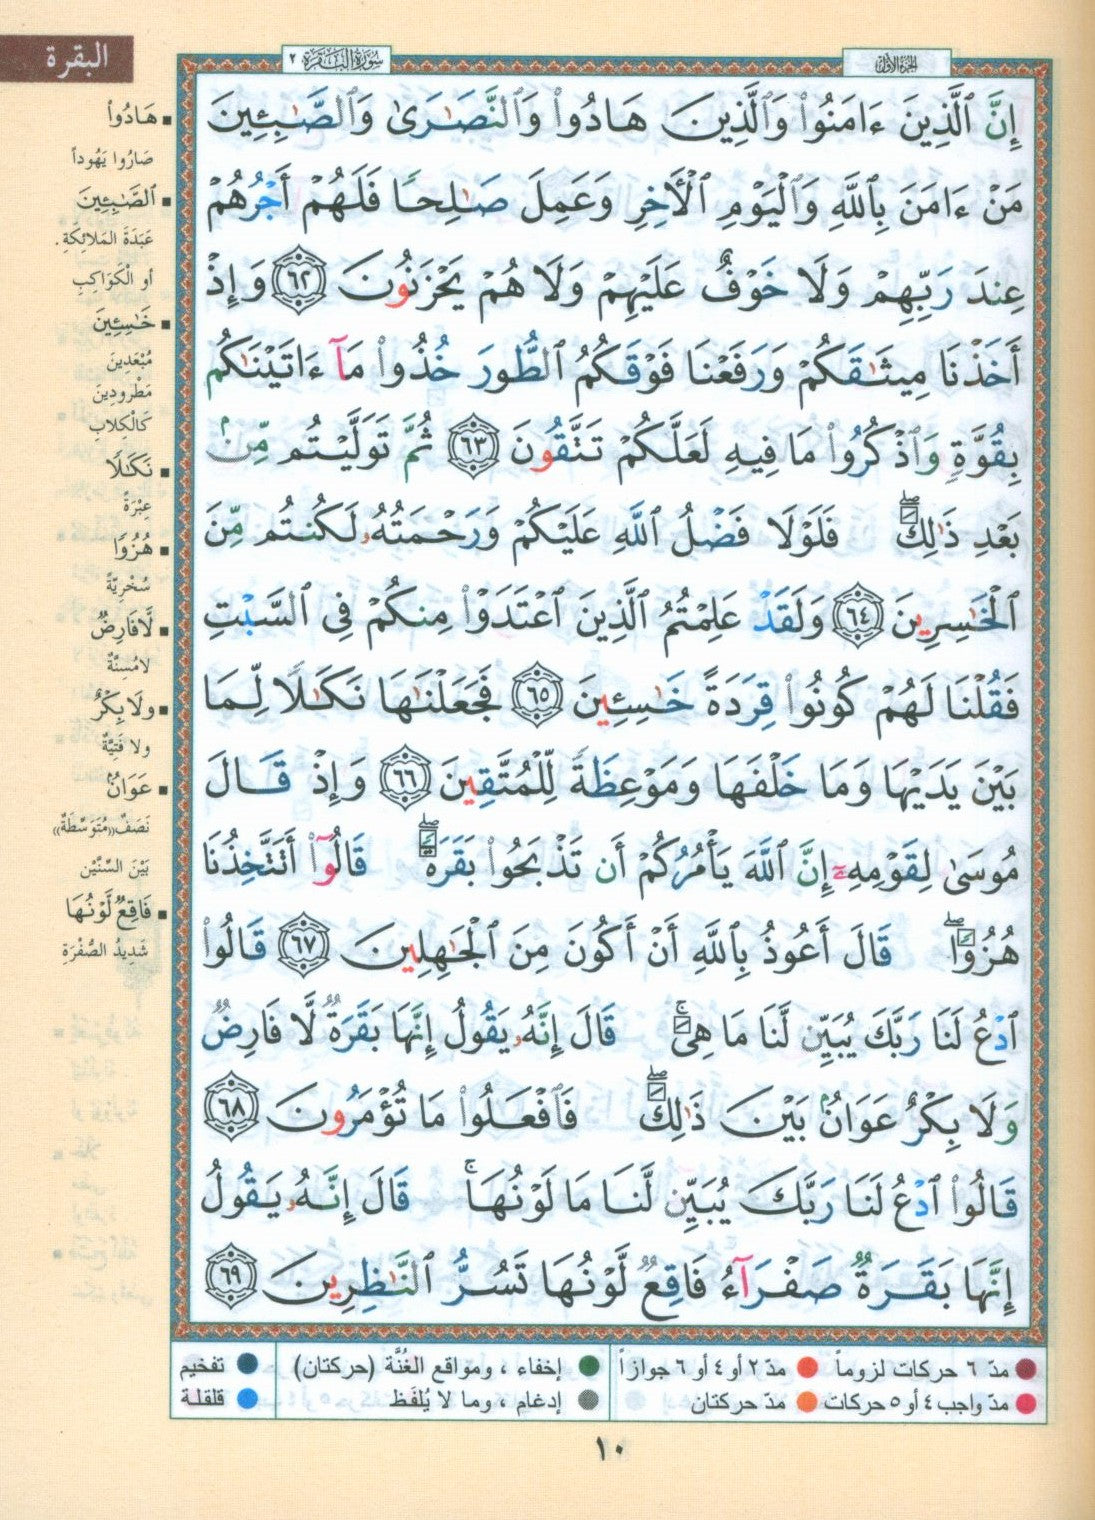 الجزء الأول
سورة البقرة ٢
البقرة
إِنَّ ٱلَّذِينَ ءَامَنُوا۟ وَٱلَّذِينَ هَادُوا۟ وَٱلنَّصَـٰرَىٰ وَٱلصَّـٰبِـِٔينَ
مَنْ ءَامَنَ بِٱللَّهِ وَٱلْيَوْمِ ٱلْـَٔاخِرِ وَعَمِلَ صَـٰلِحًا فَلَهُمْ أَجْرُهُمْ
عِندَ رَبِّهِمْ وَلَا خَوْفٌ عَلَيْهِمْ وَلَا هُمْ يَحْزَنُونَ ٦٢ وَإِذْ
أَخَذْنَا مِيثَـٰقَكُمْ وَرَفَعْنَا فَوْقَكُمُ ٱلطُّورَ خُذُوا۟ مَآ ءَاتَيْنَـٰكُم
بِقُوَّةٍ وَٱذْكُرُوا۟ مَا فِيهِ لَعَلَّكُمْ تَتَّقُونَ ٦٣ ثُمَّ تَوَلَّيْتُم مِّنۢ
بَعْدِ ذَٰلِكَ ۖ فَلَوْلَا فَضْلُ ٱللَّهِ عَلَيْكُمْ وَرَحْمَتُهُۥ لَكُنتُم مِّنَ
ٱلْخَـٰسِرِينَ ٦٤ وَلَقَدْ عَلِمْتُمُ ٱلَّذِينَ ٱعْتَدَوْا۟ مِنكُمْ فِى ٱلسَّبْتِ
فَقُلْنَا لَهُمْ كُونُوا۟ قِرَدَةً خَـٰسِـِٔينَ ٦٥ فَجَعَلْنَـٰهَا نَكَـٰلًا لِّمَا
بَيْنَ يَدَيْهَا وَمَا خَلْفَهَا وَمَوْعِظَةً لِّلْمُتَّقِينَ ٦٦ وَإِذْ قَالَ
مُوسَىٰ لِقَوْمِهِۦٓ إِنَّ ٱللَّهَ يَأْمُرُكُمْ أَن تَذْبَحُوا۟ بَقَرَةً ۖ قَالُوٓا۟ أَتَتَّخِذُنَا
هُزُوًا ۖ قَالَ أَعُوذُ بِٱللَّهِ أَنْ أَكُونَ مِنَ ٱلْجَـٰهِلِينَ ٦٧ قَالُوا۟
ٱدْعُ لَنَا رَبَّكَ يُبَيِّن لَّنَا مَا هِىَ ۚ قَالَ إِنَّهُۥ يَقُولُ إِنَّهَا بَقَرَةٌ لَّا فَارِضٌ
وَلَا بِكْرٌ عَوَانٌۢ بَيْنَ ذَٰلِكَ ۖ فَٱفْعَلُوا۟ مَا تُؤْمَرُونَ ٦٨
قَالُوا۟ ٱدْعُ لَنَا رَبَّكَ يُبَيِّن لَّنَا مَا لَوْنُهَا ۚ قَالَ إِنَّهُۥ يَقُولُ
إِنَّهَا بَقَرَةٌ صَفْرَآءُ فَاقِعٌ لَّوْنُهَا تَسُرُّ ٱلنَّـٰظِرِينَ ٦٩
هَادُوا
صَارُوا يَهُوداً
ٱلصَّـٰبِـِٔينَ
عَبَدَةَ المَلَائِكَةِ.
أو الْكَوَاكِبِ
خَـٰسِـِٔينَ
مُبْعَدِينَ
مَطْرُودِينَ
كَالْكِلابِ
نَكَـٰلًا
عِبْرَةً
هُزُوًا
سُخْرِيَّةً
لَّا فَارِضٌ
لا مُسِنَّةٌ
ولَا بِكْرٌ
ولا فَتِيَّةٌ
عَوَانٌ
نَصَفٌ «مُتَوَسِّطَةٌ»
بَيْنَ السِّنَّيْنِ
فَاقِعٌ لَّوْنُهَا
شَدِيدُ الصُّفْرَةِ
مدّ ٦ حركات لزوماً مدّ ٢ أو ٤ أو ٦ جوازاً إخفاء ، ومواقع الغُنَّة (حركتان) تفخيم
مدّ واجب ٤ أو ٥ حركات مدّ حركتان إدغام ، وما لا يُلفَظ قلقلة
١٠